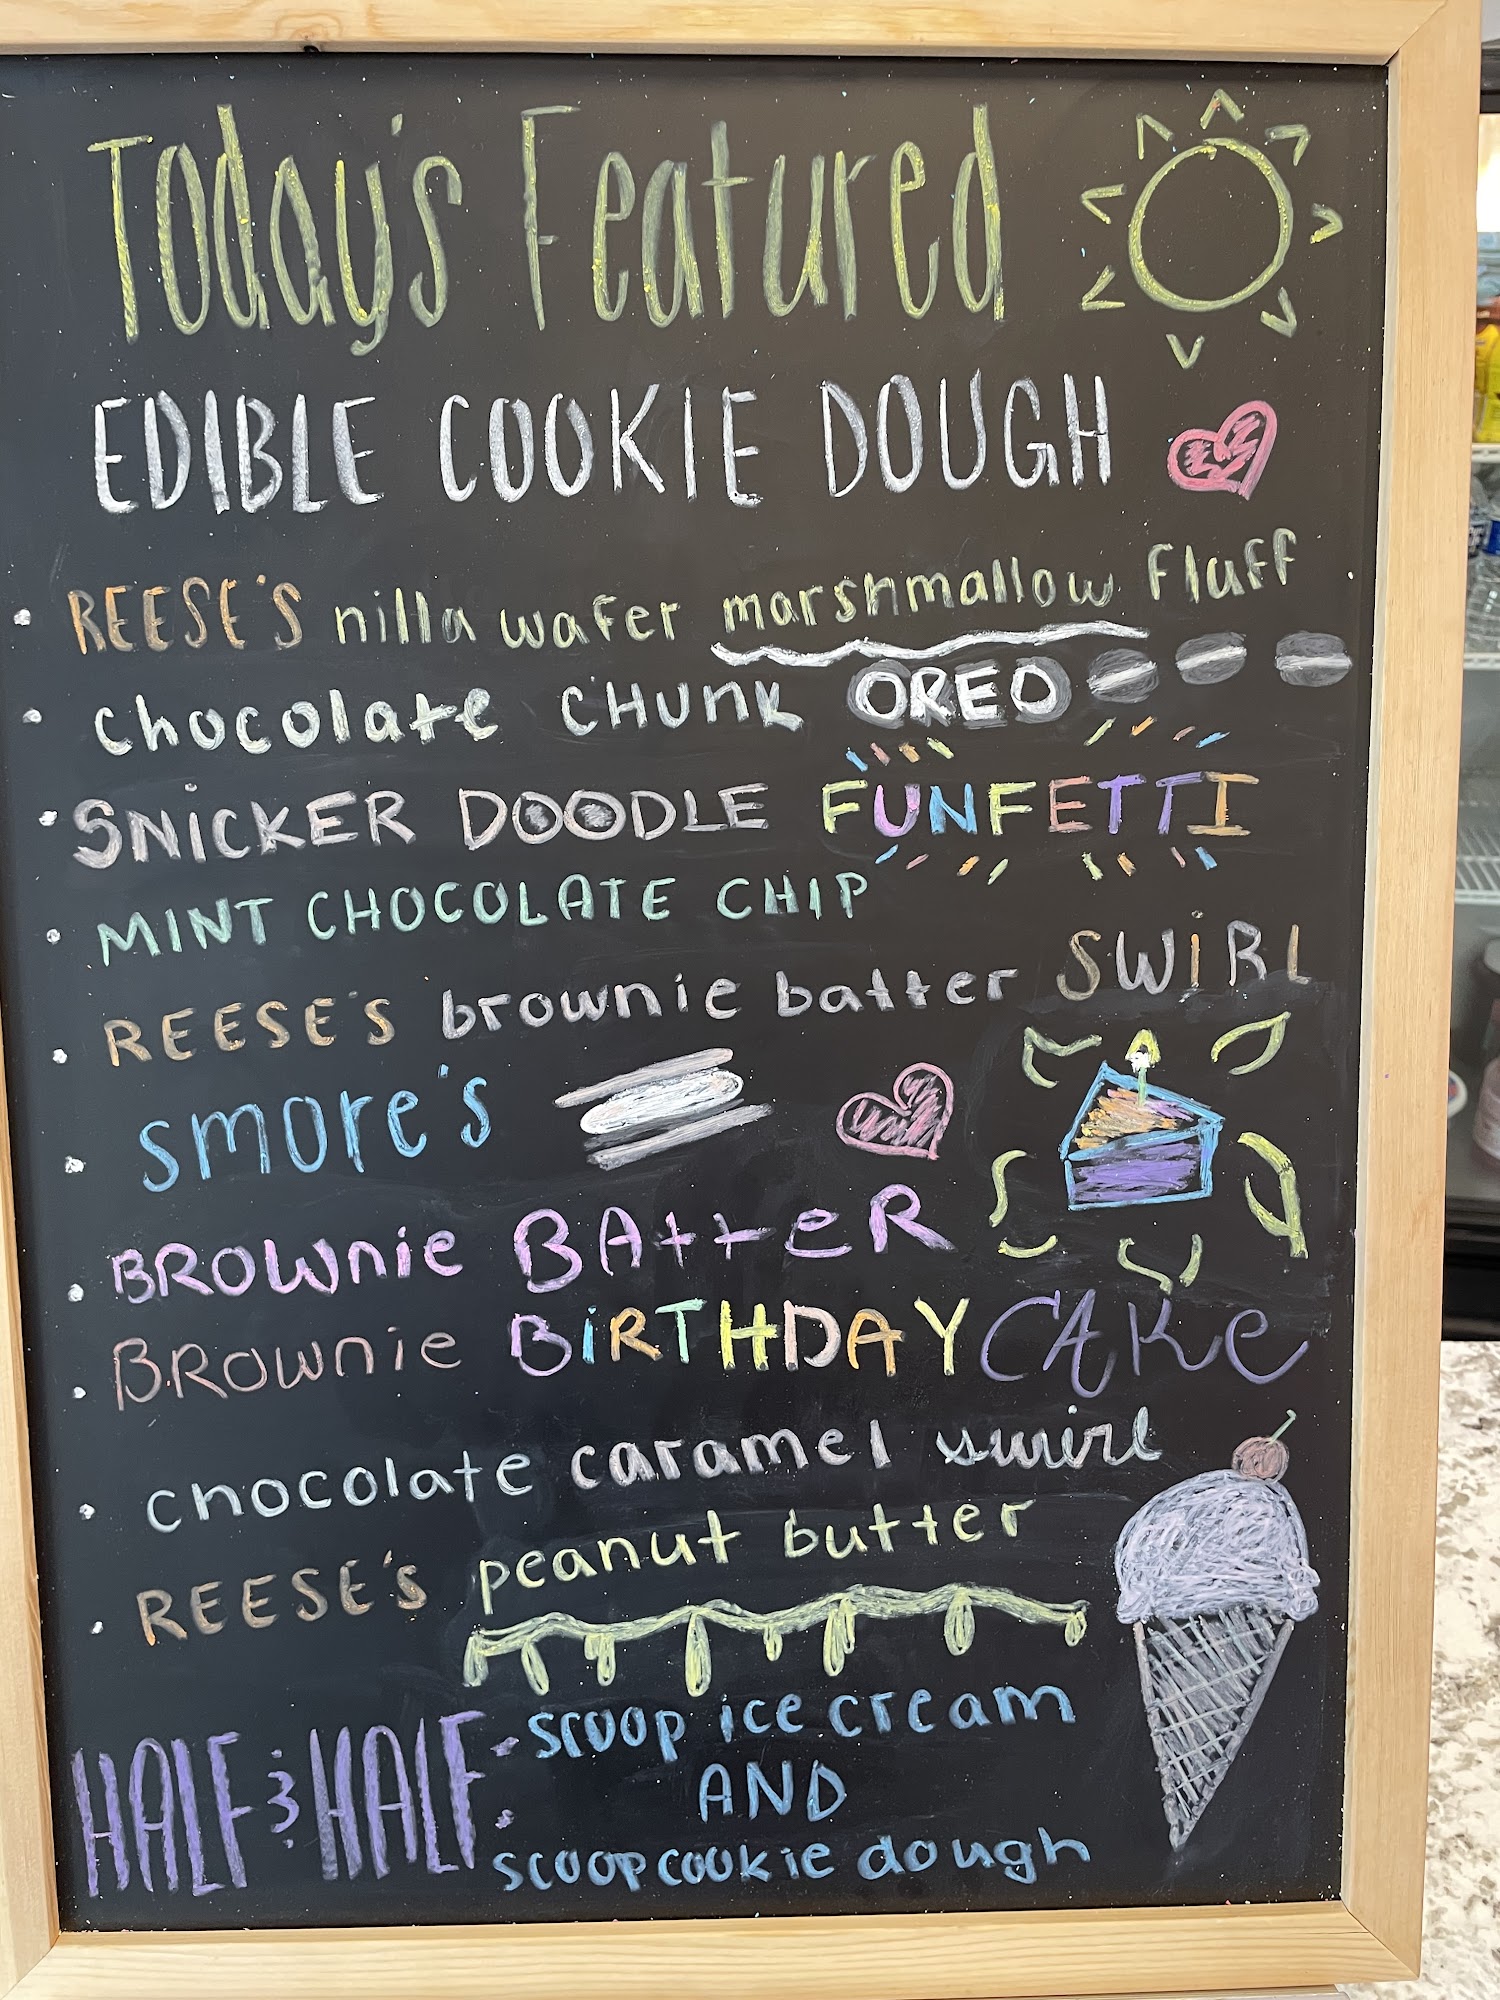 Today's Featured
EDIBLE COOKIE DOUGH
• REESE'S nilla wafer marshmallow Fluff
• chocolate CHUNK OREO
• SNiCKER DOODLE FUNFETTI
• MINT CHOCOLATE CHIP
• REESE'S brownie batter SWiRL
• smore's
• BROWnie BAtteR
• BROWnie BiRTHDAY CAKe
• chocolate caramel swirl
• REESE'S peanut butter
HALF & HALF: scoop ice cream
AND
scoop cookie dough